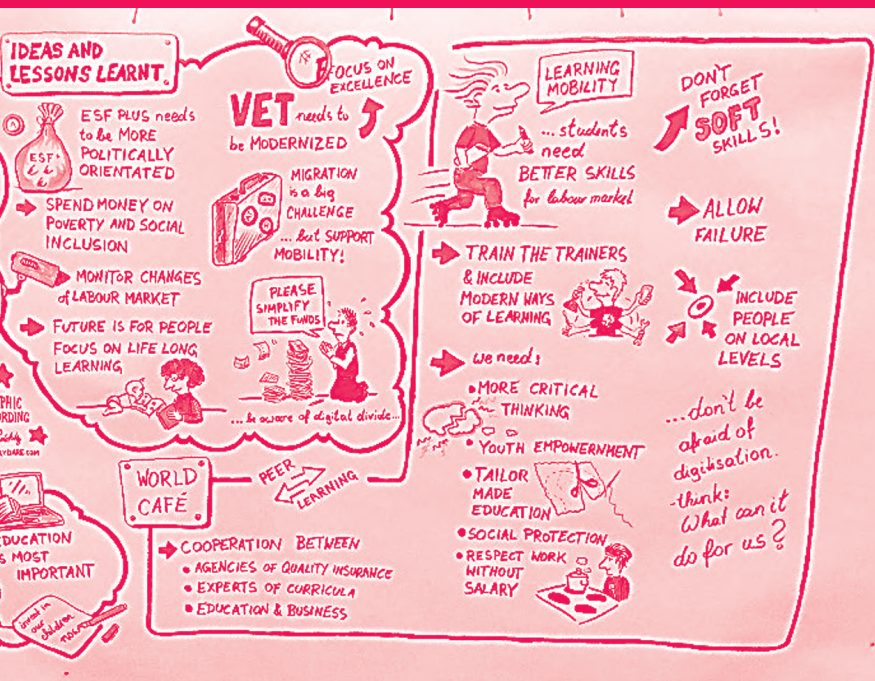 IDEAS AND
LESSONS LEARNT
ESF PLUS needs
to be MORE
POLITICALLY
ORIENTATED
ESF+
SPEND MONEY ON
POVERTY AND SOCIAL
INCLUSION
MONITOR CHANGES
of LABOUR MARKET
FUTURE IS FOR PEOPLE
FOCUS ON LIFE LONG
LEARNING
FOCUS ON
EXCELLENCE
VET needs to
be MODERNIZED
MIGRATION
is a big
CHALLENGE
... but SUPPORT
MOBILITY!
PLEASE
SIMPLIFY
THE FUNDS
... be aware of digital divide...
EDUCATION
IS MOST
IMPORTANT
invest in
our
children
now
WORLD
CAFÉ
PEER
LEARNING
COOPERATION BETWEEN
• AGENCIES OF QUALITY INSURANCE
• EXPERTS OF CURRICULA
• EDUCATION & BUSINESS
LEARNING
MOBILITY
... students
need
BETTER SKILLS
for labour market
TRAIN THE TRAINERS
& INCLUDE
MODERN WAYS
OF LEARNING
we need:
• MORE CRITICAL
THINKING
• YOUTH EMPOWERNMENT
• TAILOR
MADE
EDUCATION
• SOCIAL PROTECTION
• RESPECT WORK
WITHOUT
SALARY
DON'T
FORGET
SOFT
SKILLS!
ALLOW
FAILURE
INCLUDE
PEOPLE
ON LOCAL
LEVELS
...don't be
afraid of
digitisation.
-think:
What can it
do for us?